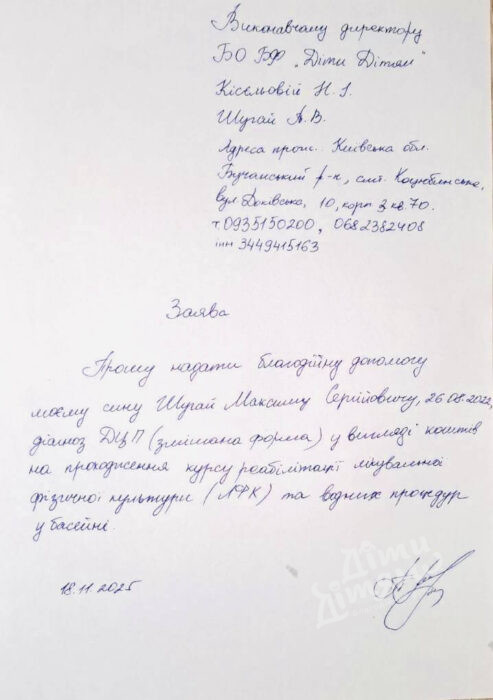 Виконавчому директору
БО БФ "Діти Дітям"
Кісельовій Н. І.
Шугай А. В.
Адреса прож.: Київська обл.
Бучанський р-н, смт. Коцюбинське,
вул Доківська, 10, корп 3 кв 70.
т. 0935150200, 0682382408
інн 3449415163
Заява
Прошу надати благодійну допомогу
моєму сину Шугай Максиму Сергійовичу, 26.08.2022,
діагноз ДЦП (змішана форма) у вигляді коштів
на проходження курсу реабілітації лікувальної
фізичної культури (ЛФК) та водних процедур
у басейні.
18.11.2025
Діти
Дітям